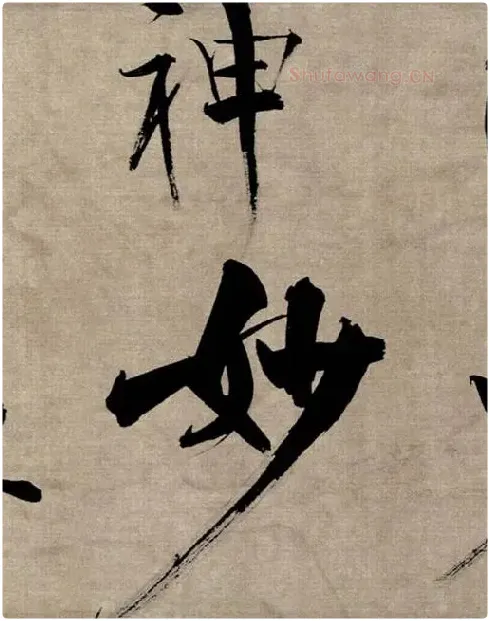 神
妙
ShuFaWang.CN